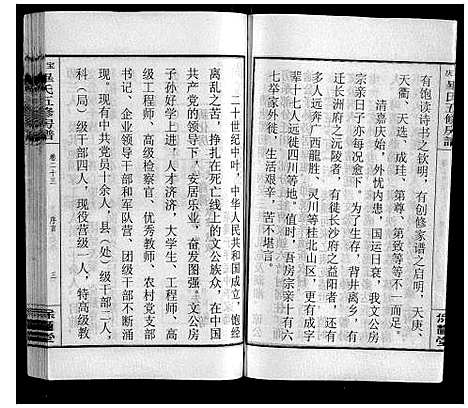 有饱读诗书之钦明，有创修家谱之启明，天庚、
天衢、天选、成珪、第尊、第致等等不一而足。
清嘉庆始，外忧内患，国运日衰，我文公房
宗亲日子亦每况愈下。为了生存，背井离乡，有
迁长洲府之沅陵者，有徙长沙府之攸县者，更有
多人远奔广西龍胜、灵川等桂北山区，更有成字
七举家外徙，生活艰辛，苦不堪言。
二十世纪中叶，中华人民共和国成立，饱经
离乱之苦，挣扎在死亡线上的文公族众，在中国
共产党的领导下，安居乐业，奋发图强。文公房
子孙好学上进，人才济济，大学生、工程师、高
级工程师、高级检察官、优秀教师、农村党支部
书记、企业领导干部和军队营、团级干部不断涌
现。现有中共党员十余人，县（处）级干部二人，
科（局）级干部四人，现役营级一人，特高级教
氏五修房谱
卷二十三
序言
三